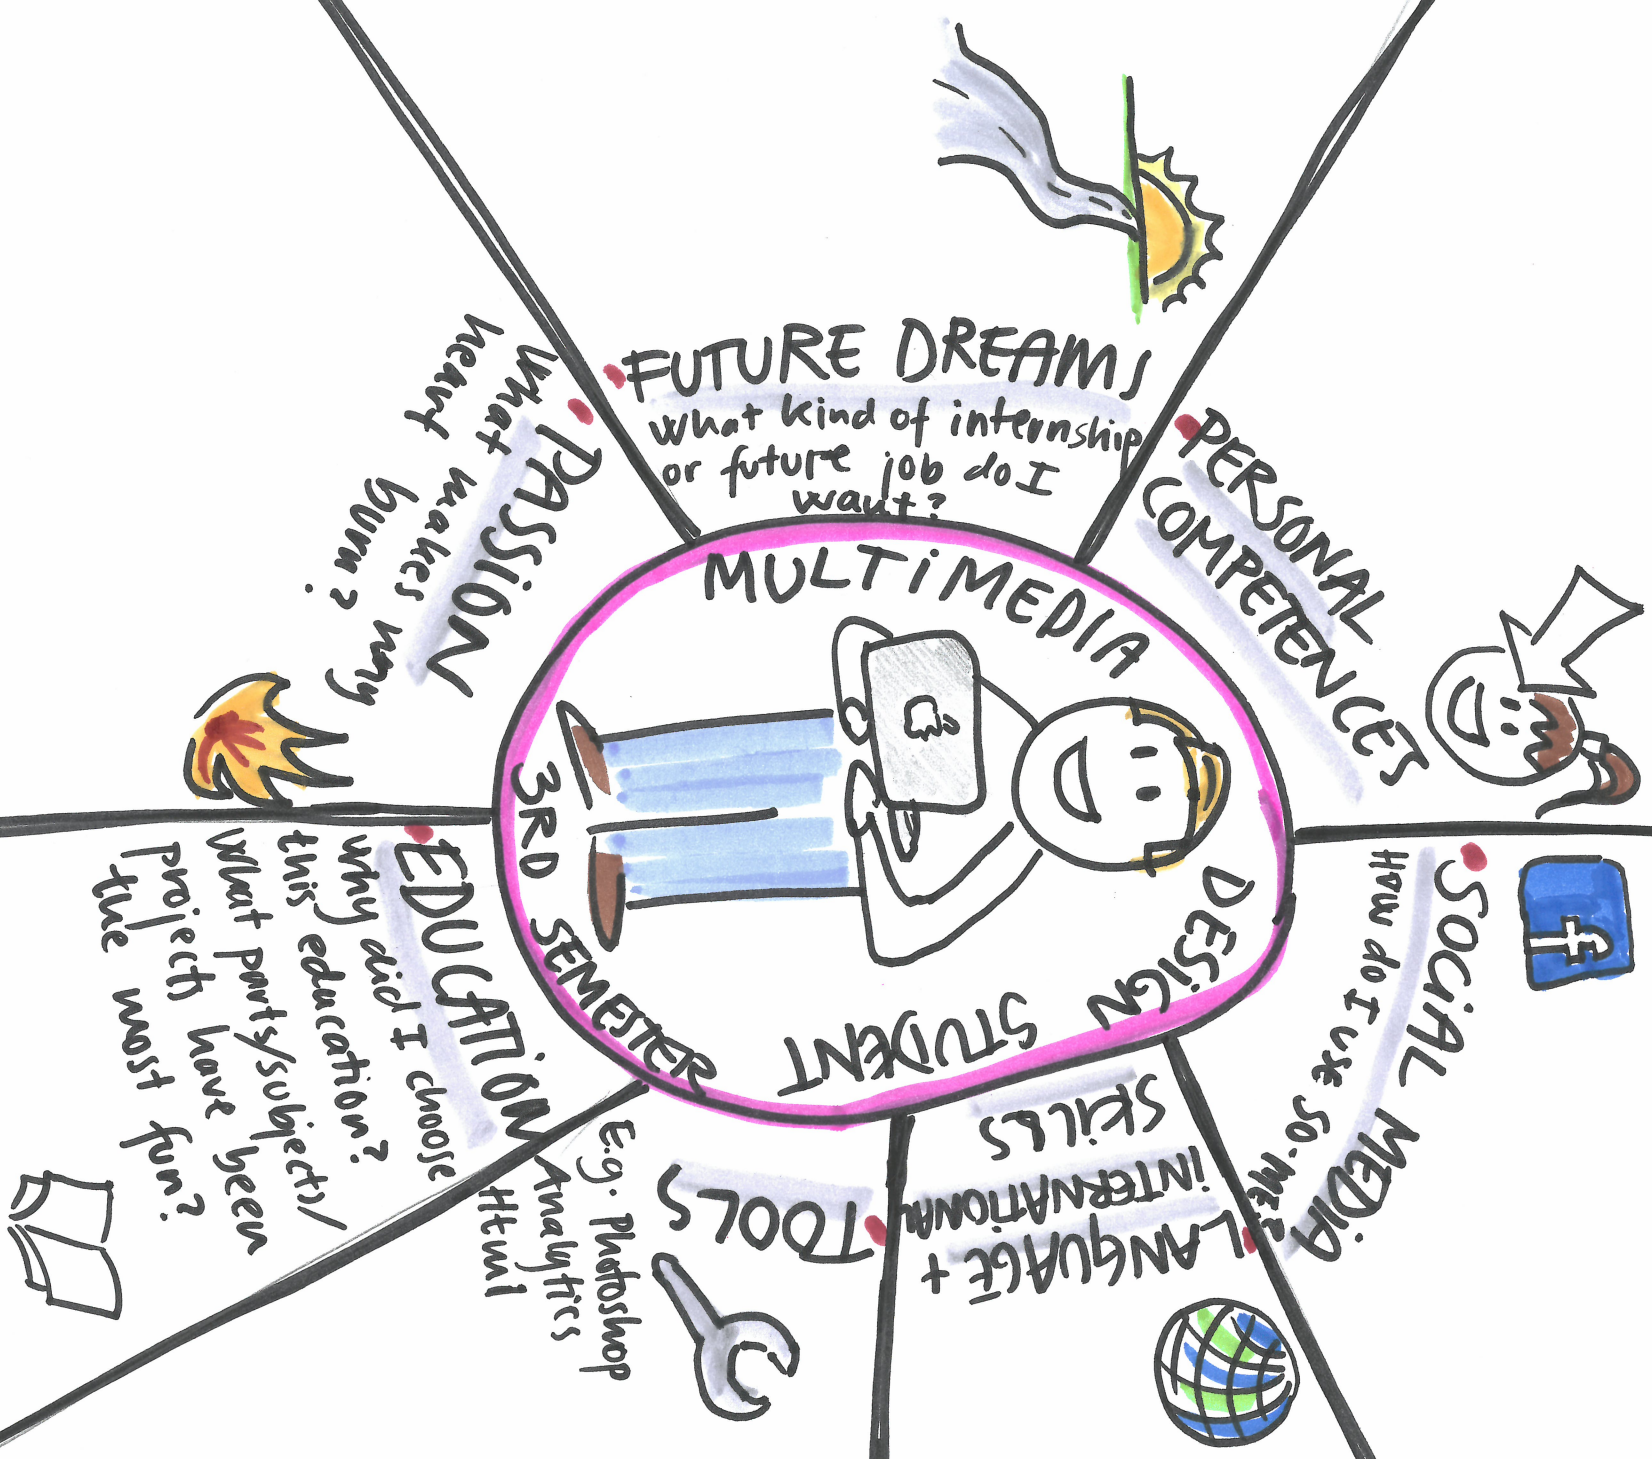 MULTIMEDIA
DESIGN
STUDENT
3RD SEMESTER
FUTURE DREAMS
What kind of internship
or future job do I
want?
PERSONAL
COMPETENCES
SOCIAL MEDIA
How do I use SO-ME?
LANGUAGE +
INTERNATIONAL
SKILLS
TOOLS
E.g. Photoshop
Analytics
Html
EDUCATION
Why did I choose
this education?
What parts/subjects/
projects have been
the most fun?
PASSION
What makes my
heart
burn?
f